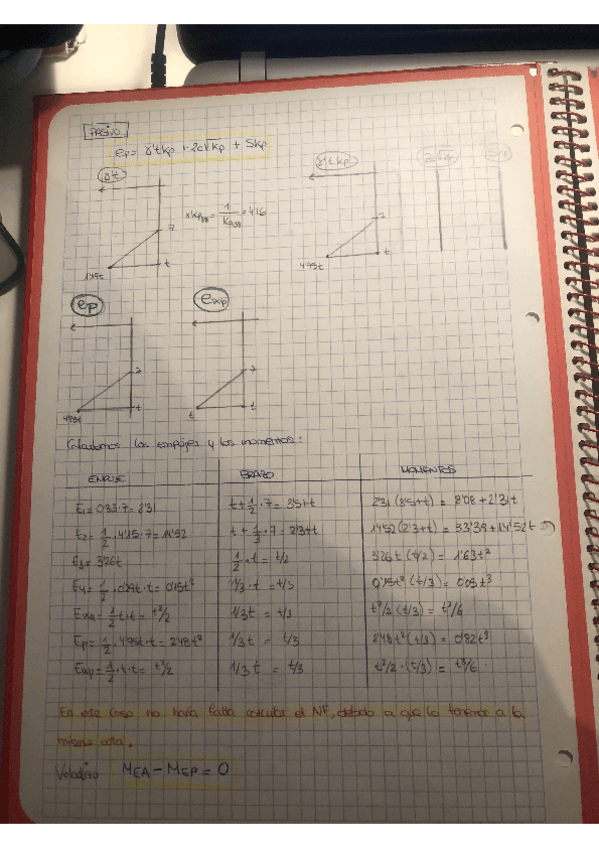 PASIVO
ep = γ'tkp + 2c√kp + Skp
γ't
γ'tkp
2c√kp
Skp
7
* Kp = 1/Ka = 4'16
7
t
t
4'95t
ep
exp
7
7
4'95t
t
t
t
Calculamos los empujes y los momentos:
EMPUJE
BRAZO
MOMENTOS
E1 = 0'33·7 = 2'31
t + 1/2·7 = 3'5+t
2'31 (3'5+t) = 8'08 + 2'31t
E2 = 1/2·4'15·7 = 14'52
t + 1/3·7 = 2'3+t
14'52 (2'3+t) = 33'39 + 14'52t
E3 = 3'26t
1/2·t = t/2
3'26t (t/2) = 1'63t²
E4 = 1/2·0'29t·t = 0'15t²
1/3·t = t/3
0'15t² (t/3) = 0'05t³
1/2 t·t = t²/2
1/3t = t/3
t²/2 (t/3) = t³/6
Ep = 1/2·4'95t·t = 2'48t²
1/3 t = t/3
2'48t² (t/3) = 0'82t³
Exp = 1/2·t·t = t²/2
1/3 t = t/3
t²/2·(t/3) = t³/6
En este caso no haría falta calcular el NF, debido a que lo tenemos a la
misma cota.
Voladizo MEA - MEP = 0